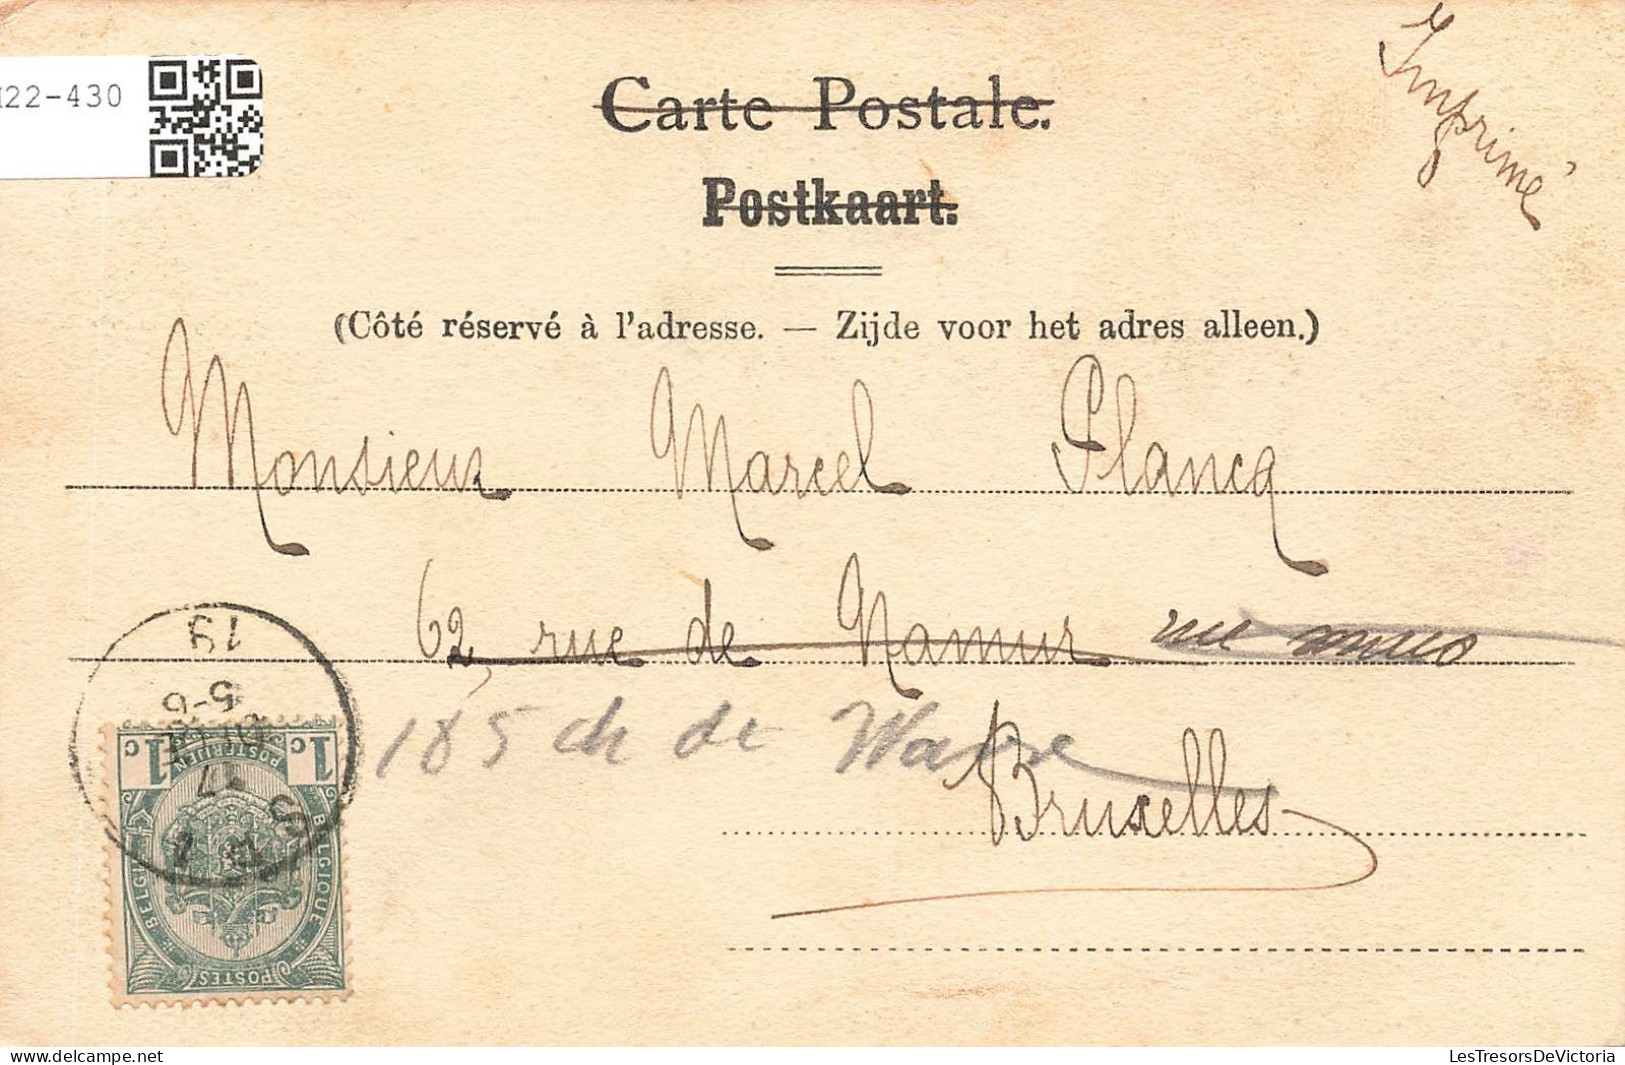 I22-430
Carte Postale.
Postkaart.
Imprimé
(Côté réservé à l'adresse. — Zijde voor het adres alleen.)
Monsieur Marcel Plancq
62 rue de Namur
185 ch de Wavre
Bruxelles
19
5-6
1c POSTERIJEN 1c
BELGIE BELGIQUE
POSTES
LesTresorsDeVictoria
delcampe.net